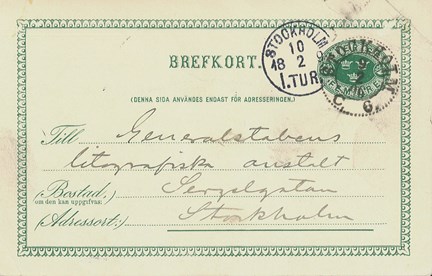 BREFKORT.
STOCKHOLM
10
18 2
1.TUR
STOCKHOLM
C. 6
(DENNA SIDA ANVÄNDES ENDAST FÖR ADRESSERINGEN.)
Till Generalstabens
litografiska anstalt
(Bostad.) Sergelgatan
om den kan uppgifvas:
(Adressort:) Stockholm